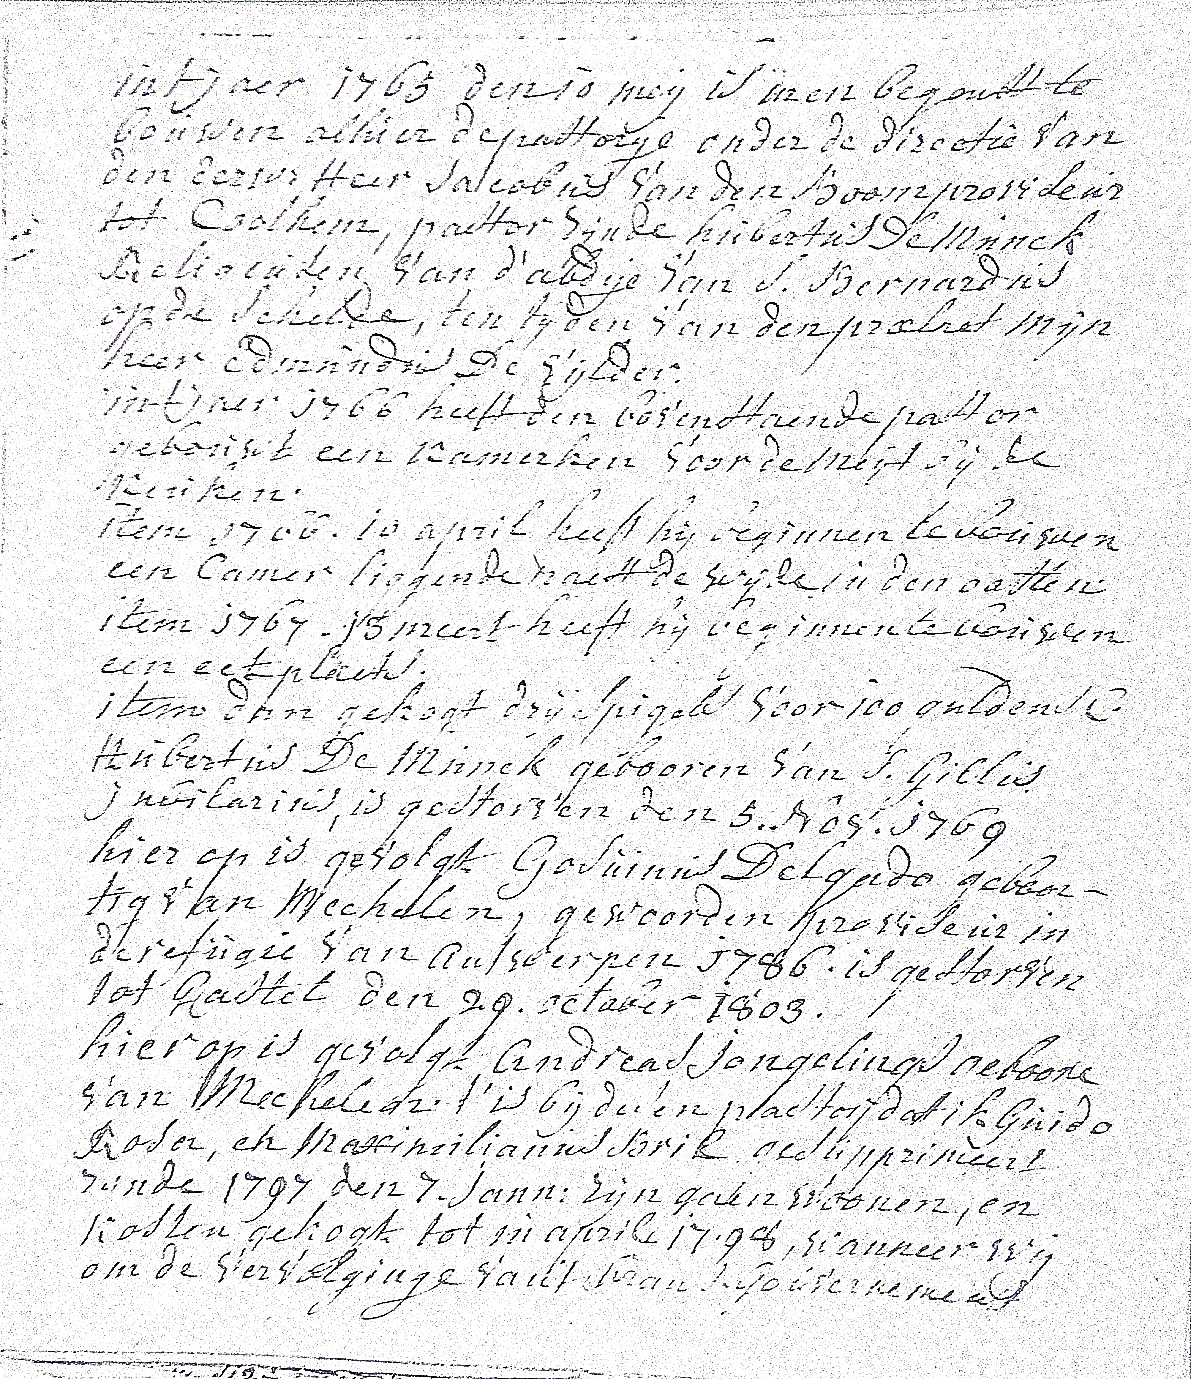 int Jaer 1765 den 10 meij is men begonst te
bouwen alhier de pastorije onder de directie van
den eerw: Heer Jacobus Van den Boom provideur
tot Coolhem, pastor zijnde hubertus De Minnck
Religiusten van d'abdije van S. Bernardus
op de Schelde, ten tyden van den prælaet Mijn
heer Edmundus De Vylder.
int Jaer 1766 heeft den bovenstaende pastor
gebouwt een kamerken voor de Meijt bij de
keuken.
item 1766. 10 april heeft hij beginnen te bouwen
een Camer liggende naest de zyde in den oosten
item 1767. 13 meert heeft hij beginnen te bouwen
een eetplaets.
item dan gekogt drij spigels voor 100 guldens C
Hubertus De Minnck gebooren van S. Gillis
Jubilarius, is gestorven den 5. Nov. 1769
hier op is gevolgt Gosuinus Delgado geboor-
tig van Mechelen, gewoorden provideur in
de refugie van Antwerpen 1786. is gestorven
tot Gastel den 29. october 1803.
hier op is gevolgt Andreas Jongelings geboore
van Mechelen. t'is bij dezen pastor dat ik Guido
Rosa, en Maximilianus Brik gesupprimeert
zynde 1797 den 7. Jann: zijn gaen woonen, en
kosten gekogt tot in april 1798, wanneer wij
om de vervolginge van't frans Gouvernement